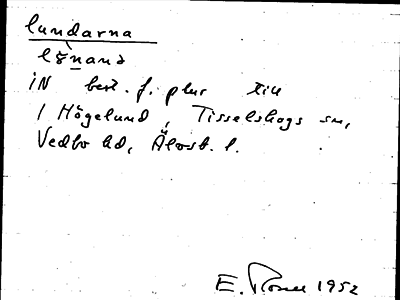 lundarna
iN best. f. plur till
1 Högelund, Tisselskogs sn,
Vedbo hd, Älvsb. l.
E. 1952